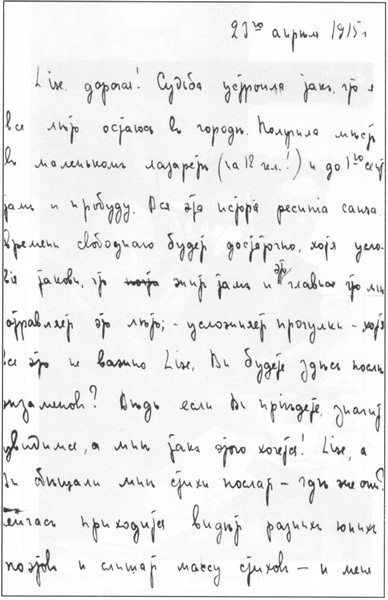 23го апреля 1915 г
Lise, дорогая! Судьба устроила так, что я
все лето остаюсь въ городѣ. Получила мѣсто
въ маленькомъ лазаретѣ (на 12 чел.!) и до 1го сент
тамъ и пробуду. Вся эта исторія
времени свободнаго будетъ достаточно, хотя усло-
вія таковы, что жить тамъ и это главное что мнѣ
отравляетъ это лето; - усложняетъ прогулки - хотя
все это не важно Lise, Вы будете здѣсь послѣ
экзаменовъ? Вѣдь если Вы пріѣдете, значитъ
увидимся, а мнѣ такъ этого хочется! Lise, а
Вы обѣщали мнѣ стихи послать - гдѣ же они?
Сейчасъ приходится видѣть разныхъ юныхъ
поэтовъ и слышать массу стиховъ - и меня